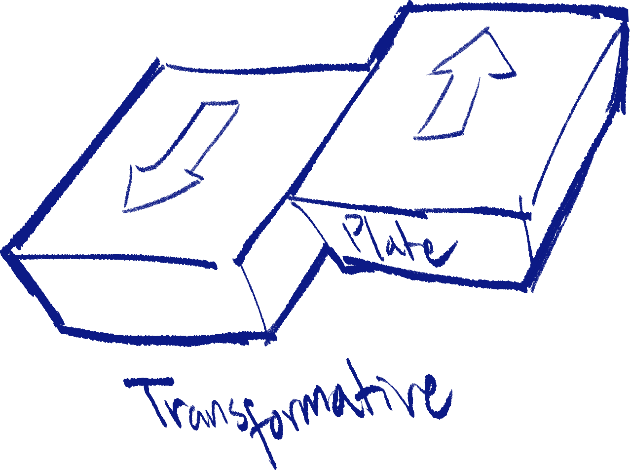 Plate
Transformative